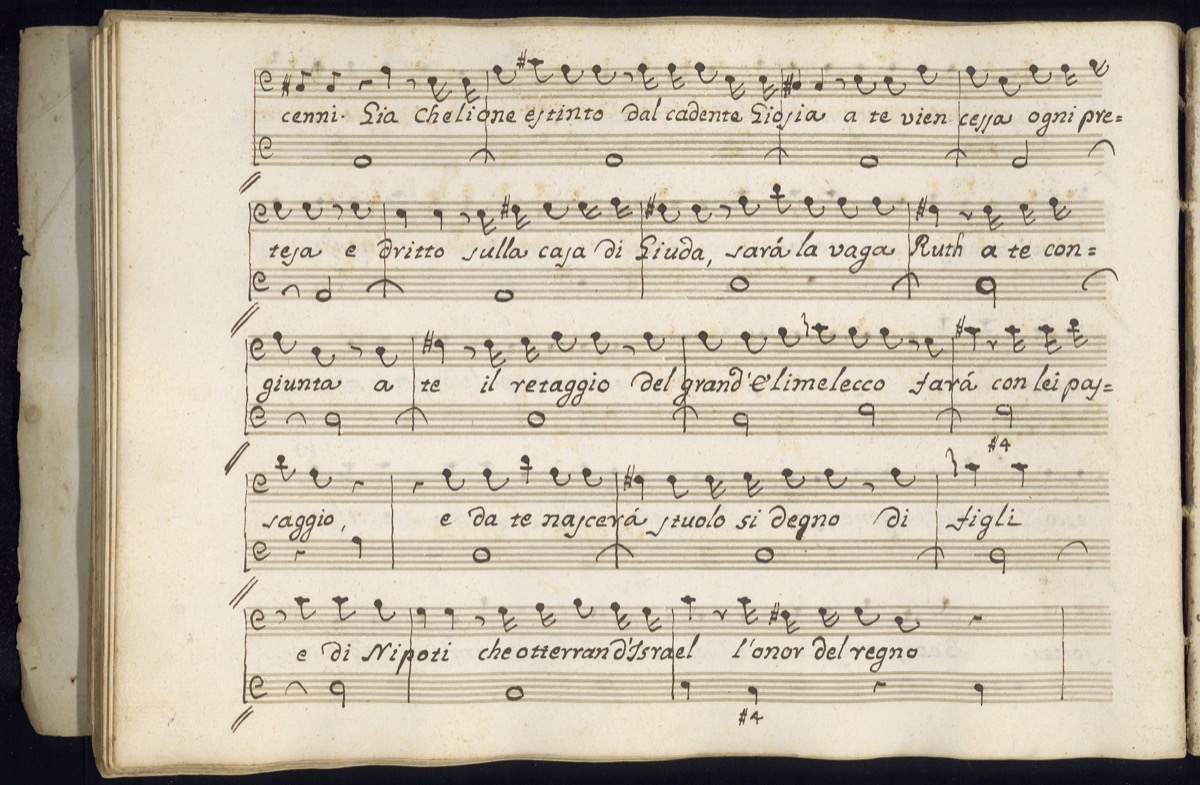 cenni. Gia che lione estinto dal cadente Giosia a te vien cessa ogni pre=
tesa e dritto sulla casa di Giuda, sará la vaga Ruth a te con=
giunta a te il retaggio del grand'Elimelecco fará con lei pas=
#4
saggio, e da te nascerá stuolo si degno di figli
e di Nipoti che otterran d'Israel l'onor del regno
#4